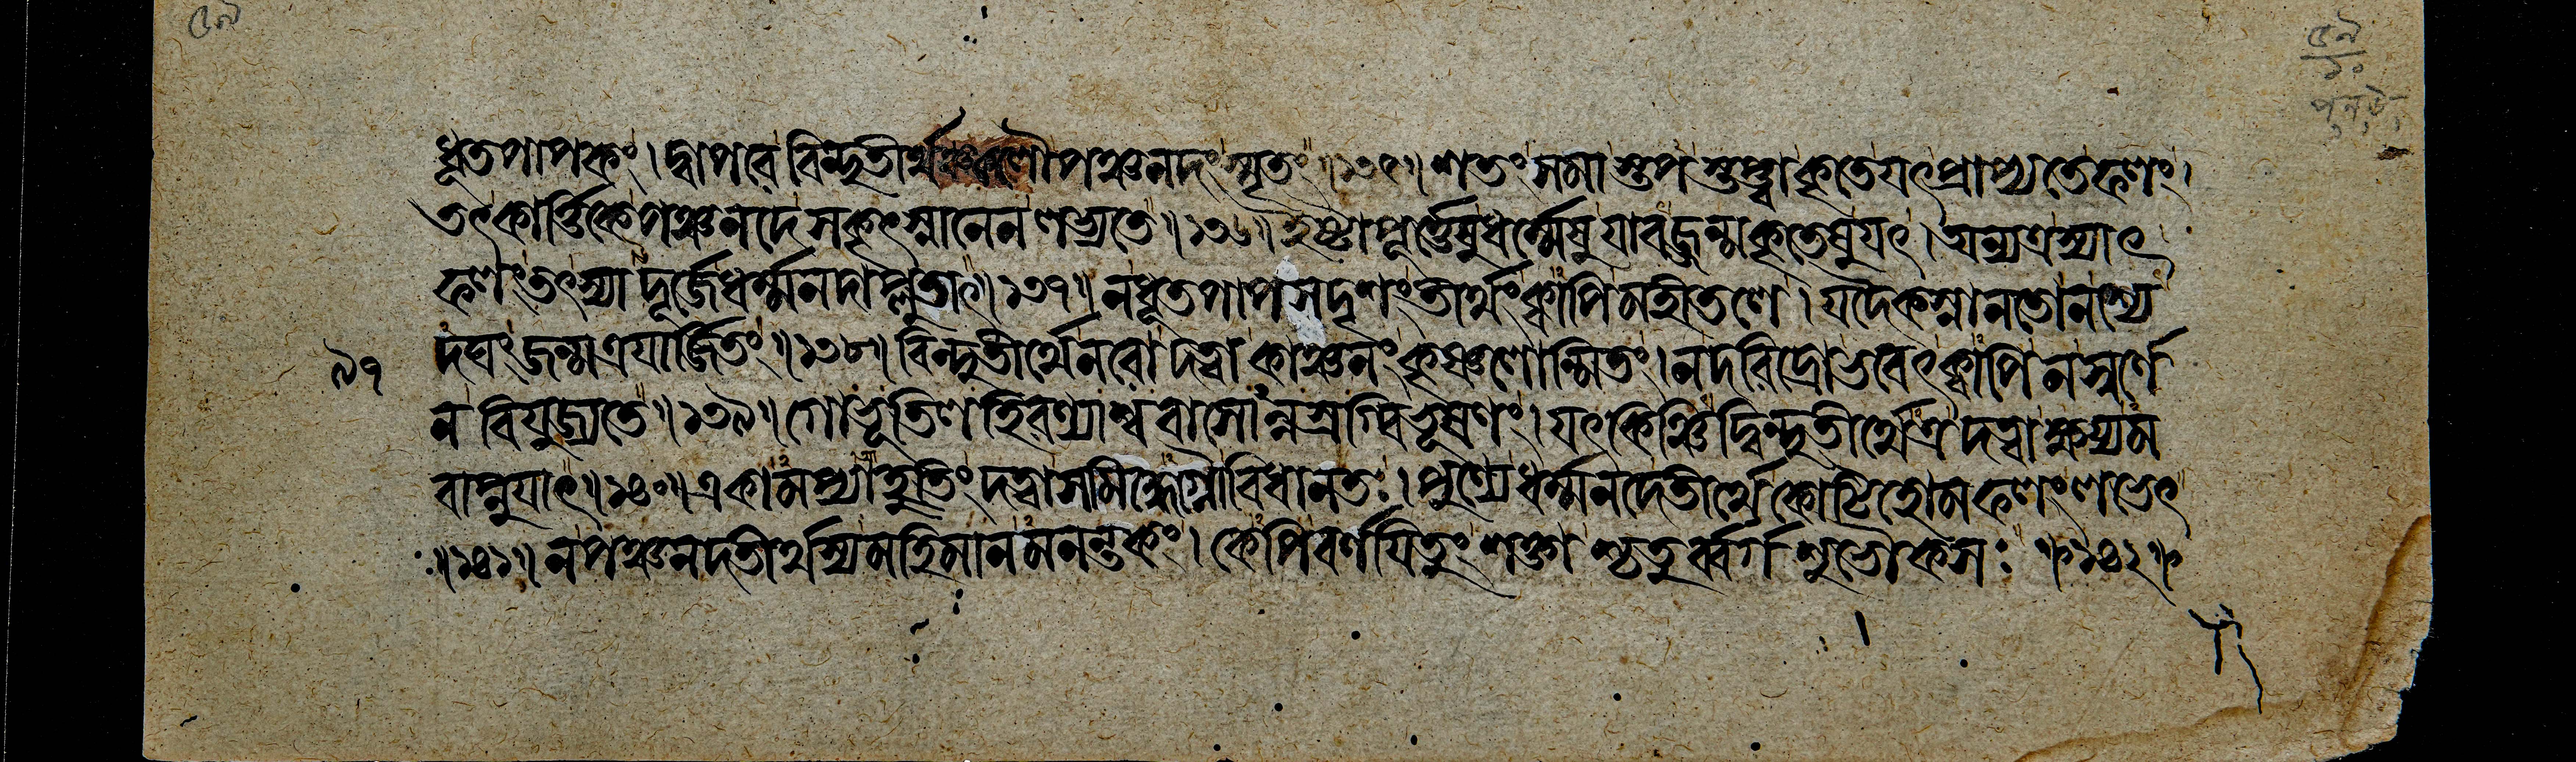 ৫৯
৫৯
১০
ধূতপাপকং। দ্বাপরে বিন্দুতীর্থঞ্চ কলৌ পঞ্চনদং স্মৃতং॥১৩৫॥ শতং সমাস্তপস্তপ্ত্বা কৃতে যৎ প্রাপ্যতে ফলং।
তৎ কার্ত্তিকে পঞ্চনদে সকৃৎ স্নানেন লভ্যতে॥১৩৬॥ ইষ্টাপূর্ত্তেষু ধর্ম্মেষু যাবজ্জন্ম কৃতেষু যৎ। অন্যত্র স্যাৎ
ফলং তৎ স্যাদূর্জ্জে ধর্ম্মনদাপ্লুতাৎ॥১৩৭॥ ন ধূতপাপসদৃশং তীর্থং ক্বাপি মহীতলে। যদেকস্নানতো নশ্যে
৯৭ দঘং জন্মত্রয়ার্জ্জিতং॥১৩৮॥ বিন্দুতীর্থে নরো দত্বা কাঞ্চনং কৃষ্ণলোন্মিতং। ন দরিদ্রো ভবেৎ ক্বাপি ন স্বর্ণে
ন বিযুজ্যতে॥১৩৯॥ গোভূতিলহিরণ্যাশ্ববাসোন্নস্রগ্বিভূষণং। যৎকিঞ্চিদ্বিন্দুতীর্থেত্র দত্বাক্ষয়্যম
বাপ্নুয়াৎ॥১৪০॥ একামপ্যাহুতিং দত্বা সমিদ্ধেগ্নৌ বিধানতঃ। পুণ্যে ধর্ম্মনদে তীর্থে কোটিহোমফলং লভেৎ
॥১৪১॥ ন পঞ্চনদতীর্থস্য মহিমানমনন্তকং। কোপি বর্ণয়িতুং শক্তশ্চতুর্ব্বর্গশুভৌকসঃ ॥১৪২॥